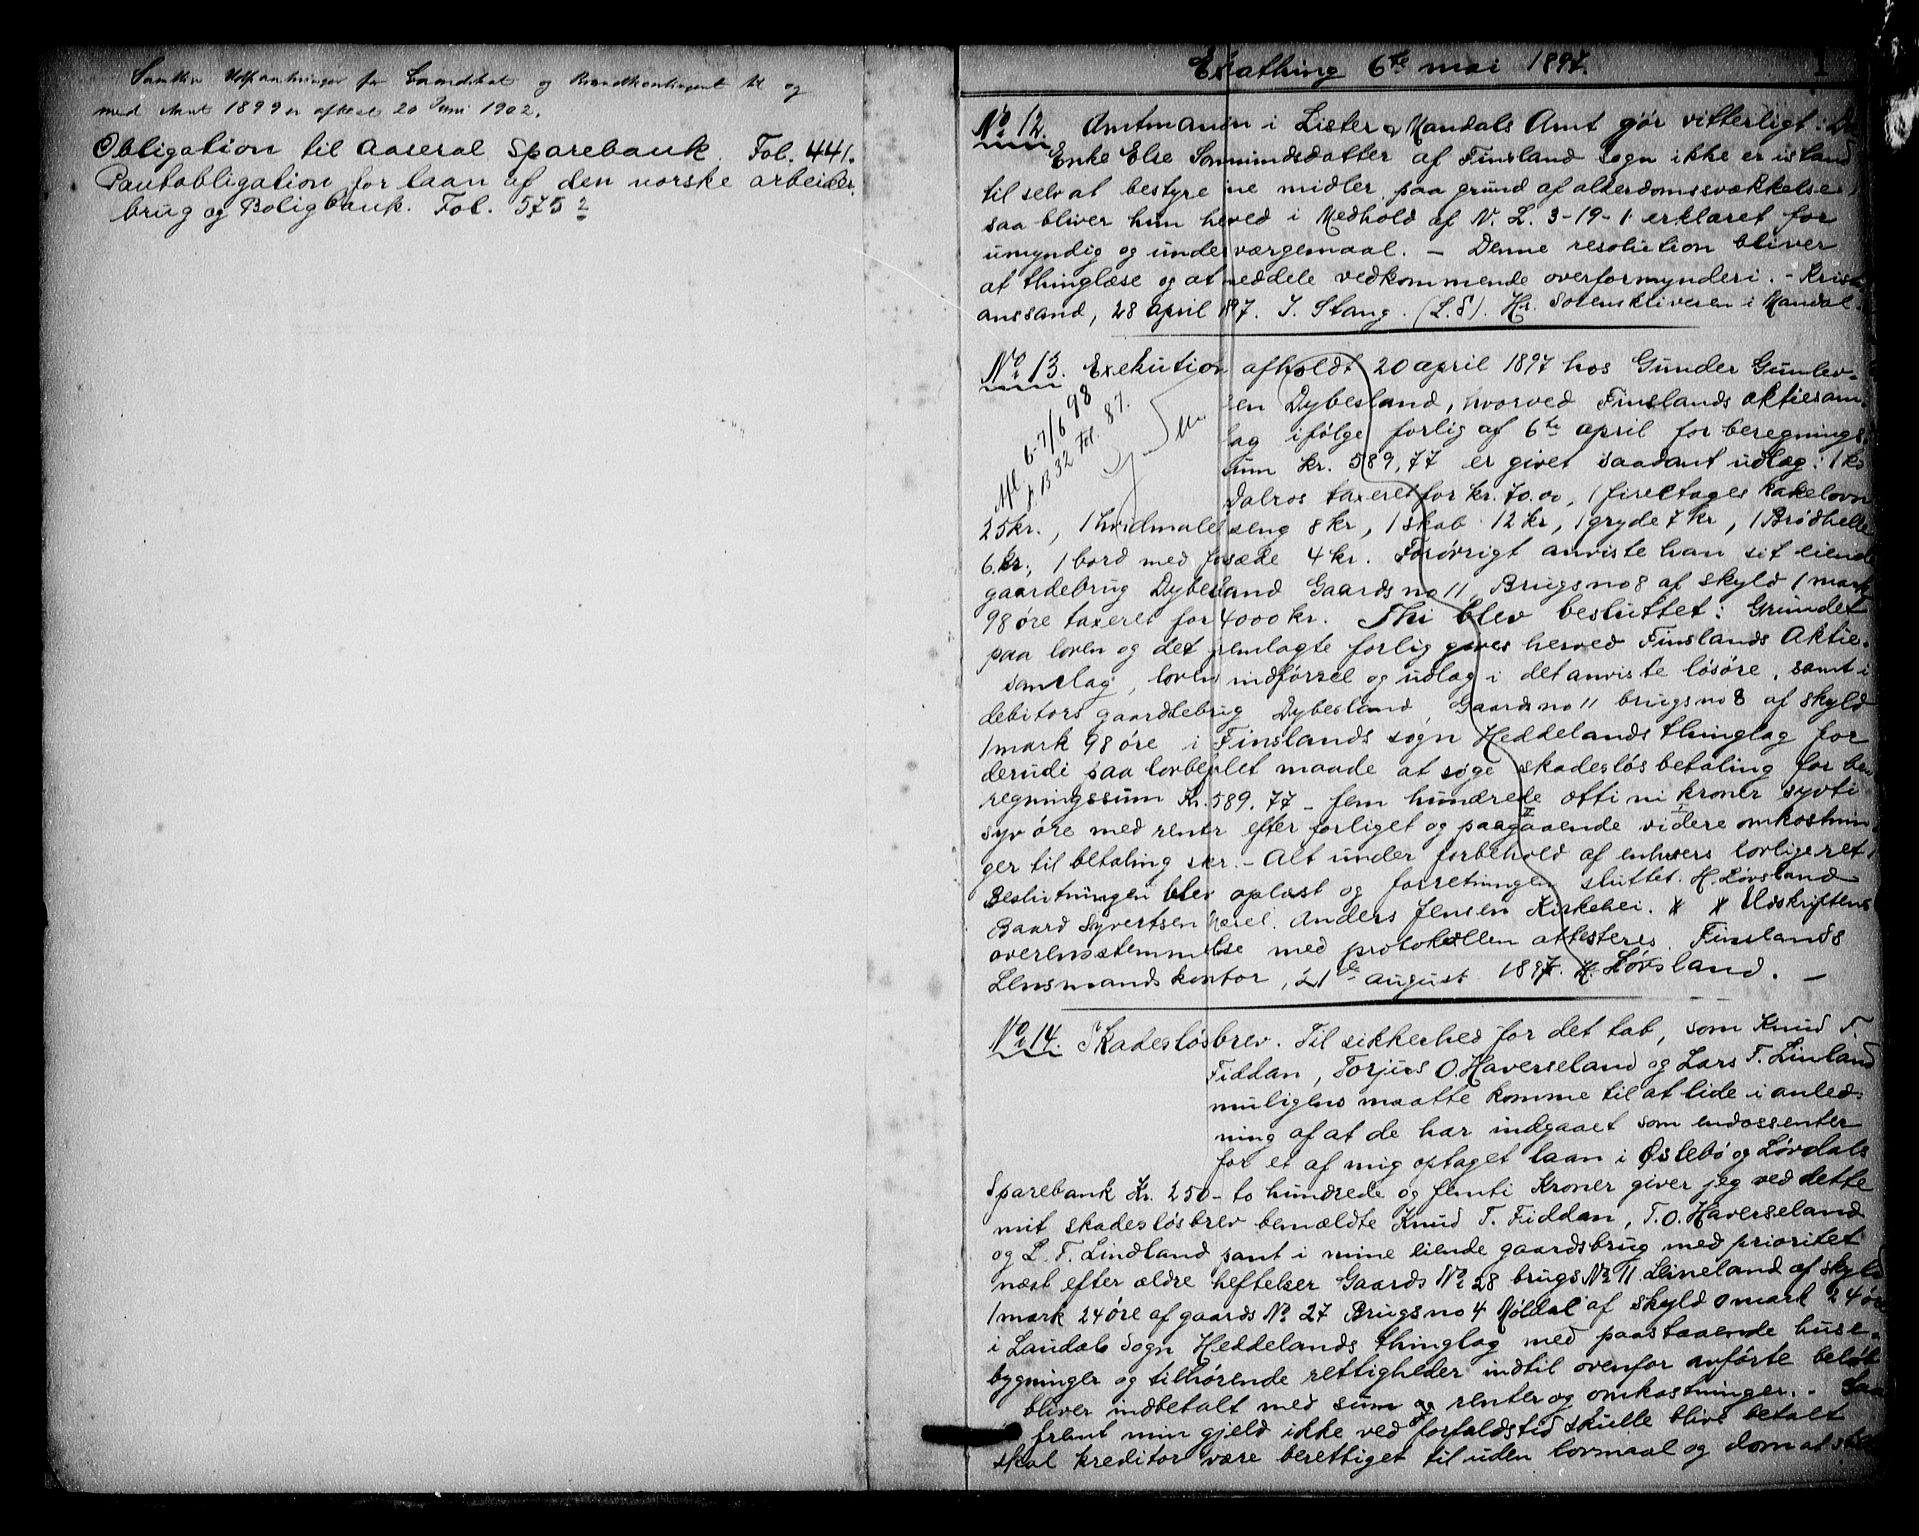 Samtlige Udpantninger for Laanditat og Brandkontingent til og
med Aaret 1899 er aflæst 20 Juni 1902.
Obligation til Aaseral Sparebank. Fol. 441.
Pantobligation for laan af den norske arbeider
brug og Boligbank. Fol. 575 2
Extrathing 6te mai 1897. 1
No 12. Amtmanden i Lister & Mandals Amt gjør vitterligt: Da
Enke Else Sommundsdatter af Finsland sogn ikke er istand
til selv at bestyre sine midler paa grund af alderdomssvækkelse,
saa bliver hun herved i Medhold af N. L. 3-19-1 erklæret for
umyndig og under værgemaal. - Denne resolution bliver
at thinglæse og at meddele vedkommende overformynderi. - Kristi
anssand, 28 april 1897. J. Stang. (L.S). Hr. Sorenskriveren i Mandal.
No 13. Exekution afholdt 20 april 1897 hos Gunder Gunlev-
sen Dybesland, hvorved Finslands aktiesam-
lag ifølge forlig af 6te april for beregnings
sum kr. 589,77 er givet saadant udlæg: 1 ko
Dalros taxeret for kr. 70.00, 1 fireetages kakelovn
Afl. 6-7/6 98
P. B 32 Fol. 87.
25 kr., 1 hvidmalet seng 8 kr, 1 skab 12 kr, 1 gryde 7 kr, 1 Brødhelle
6 kr., 1 bord med forsæde 4 kr. Forøvrigt anviste han sit eiende
gaardebrug Dybesland Gaards no 11, Brugsno 8 af skyld 1 mark
98 øre taxeret for 4000 kr. Thi blev besluttet: Grundet
paa loven og det fremlagte forlig gives herved Finslands Aktie-
samlag, loven indførsel og udlæg i det anviste løsøre, samt i
debitors gaardebrug Dybesland, Gaards no 11 brugsno 8 af skyld
1 mark 98 øre i Finslands sogn Heddelands thinglag for
derudi paa lovbefalet maade at søge skadesløs betaling for be
regningssum Kr. 589.77 - fem hundrede otti ni kroner syvti
syv øre med renter efter forliget og paagaaende videre omkostnin
ger til betaling sker. - Alt under forbehold af enhvers lovlige ret,
Beslutningen blev oplæst og forretningen sluttet. H. Løvsland
Baard Syvertsen Anders Jensen Kirkehei. # # Udskriftens
overensstemmelse med protokollen attesteres. Finslands
Lensmandskontor, 21de august 1897. H. Løvsland. -
No 14. Skadesløsbrev. Til sikkerhed for det tab, som Knud T.
Fiddan, Torjus O. Haverseland og Lars T. Linland
muligens maatte komme til at lide i anled-
ning af at de har indgaaet som endossenter
for et af mig optaget laan i Øslebø og Løvdals
Sparebank Kr. 250 - to hundrede og femti Kroner giver jeg ved dette
mit skadesløsbrev bemældte Knud T. Fiddan, T. O. Haverseland
og L. T. Lindland pant i mine eiende gaardsbrug med prioritet
næst efter ældre heftelser Gaards No 28 brugs No 11 Leineland af skyld
1 mark 24 øre af gaards No 27 Brugsno 4 Møldal af skyld 0 mark 24 øre
i Laudals Sogn Heddelands thinglag med paastaaende huse-
bygninger og tilhørende rettigheder indtil ovenfor anførte beløb
bliver indbetalt med sum og renter og omkostninger. - Saa
fremt min gjeld ikke ved forfaldstid skulle blive betalt
skal kreditor være berettiget til uden lovmaal og dom at